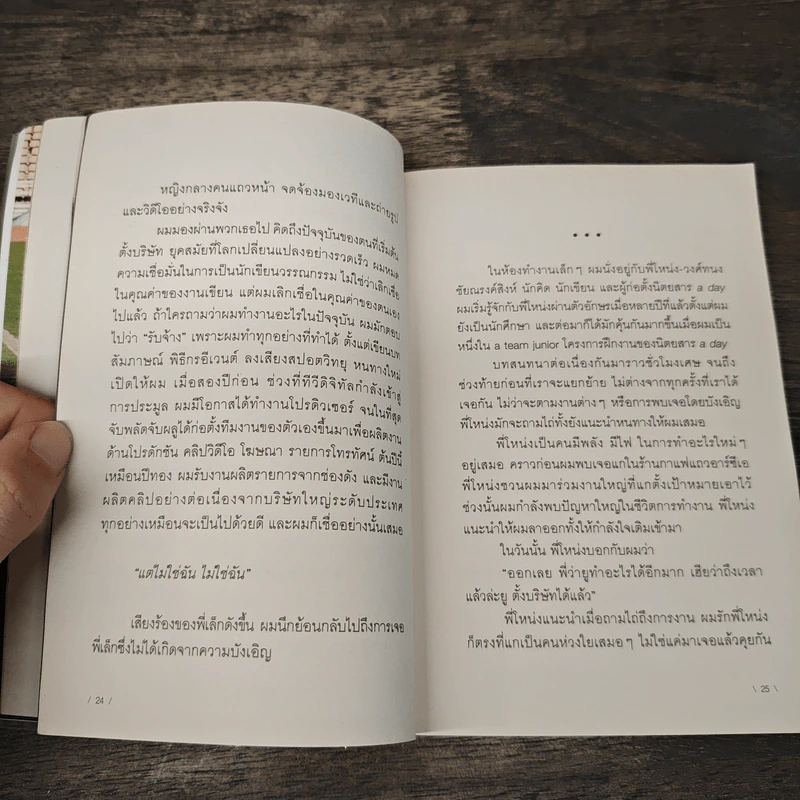 หญิงกลางคนแถวหน้า จดจ้องมองเวทีและถ่ายรูป
และวิดีโออย่างจริงจัง
ผมมองผ่านพวกเธอไป คิดถึงปัจจุบันของตนที่เริ่มต้น
ตั้งบริษัท ยุคสมัยที่โลกเปลี่ยนแปลงอย่างรวดเร็ว ผมหมด
ความเชื่อมั่นในการเป็นนักเขียนวรรณกรรม ไม่ใช่ว่าเลิกเชื่อ
ในคุณค่าของงานเขียน แต่ผมเลิกเชื่อในคุณค่าของตนเอง
ไปแล้ว ถ้าใครถามว่าผมทำงานอะไรในปัจจุบัน ผมมักตอบ
ไปว่า “รับจ้าง” เพราะผมทำทุกอย่างที่ทำได้ ตั้งแต่เขียนบท
สัมภาษณ์ พิธีกรอีเวนต์ ลงเสียงสปอตวิทยุ หนทางใหม่
เปิดให้ผม เมื่อสองปีก่อน ช่วงที่ทีวีดิจิทัลกำลังเข้าสู่
การประมูล ผมมีโอกาสได้ทำงานโปรดิวเซอร์ จนในที่สุด
จับพลัดจับผลูได้ก่อตั้งทีมงานของตัวเองขึ้นมาเพื่อผลิตงาน
ด้านโปรดักชัน คลิปวิดีโอ โฆษณา รายการโทรทัศน์ ต้นปีนี้
เหมือนปีทอง ผมรับงานผลิตรายการจากช่องดัง และมีงาน
ผลิตคลิปอย่างต่อเนื่องจากบริษัทใหญ่ระดับประเทศ
ทุกอย่างเหมือนจะเป็นไปด้วยดี และผมก็เชื่ออย่างนั้นเสมอ
“แต่ไม่ใช่ฉัน ไม่ใช่ฉัน”
เสียงร้องของพี่เล็กดังขึ้น ผมนึกย้อนกลับไปถึงการเจอ
พี่เล็กซึ่งไม่ได้เกิดจากความบังเอิญ
/ 24 /
•••
ในห้องทำงานเล็กๆ ผมนั่งอยู่กับพี่โหน่ง-วงศ์ทนง
ชัยณรงค์สิงห์ นักคิด นักเขียน และผู้ก่อตั้งนิตยสาร a day
ผมเริ่มรู้จักกับพี่โหน่งผ่านตัวอักษรเมื่อหลายปีที่แล้วตั้งแต่ผม
ยังเป็นนักศึกษา และต่อมาก็ได้มักคุ้นกันมากขึ้นเมื่อผมเป็น
หนึ่งใน a team junior โครงการฝึกงานของนิตยสาร a day
บทสนทนาต่อเนื่องกันมาราวชั่วโมงเศษ จนถึง
ช่วงท้ายก่อนที่เราจะแยกย้าย ไม่ต่างจากทุกครั้งที่เราได้
เจอกัน ไม่ว่าจะตามงานต่างๆ หรือการพบเจอโดยบังเอิญ
พี่โหน่งมักจะถามไถ่ทั้งยังแนะนำหนทางให้ผมเสมอ
พี่โหน่งเป็นคนมีพลัง มีไฟ ในการทำอะไรใหม่ๆ
อยู่เสมอ คราวก่อนผมพบเจอแกในร้านกาแฟแถวอาร์ซีเอ
พี่โหน่งชวนผมมาร่วมงานใหญ่ที่แกตั้งเป้าหมายเอาไว้
ช่วงนั้นผมกำลังพบปัญหาใหญ่ในชีวิตการทำงาน พี่โหน่ง
แนะนำให้ผมลาออกทั้งให้กำลังใจเติมเข้ามา
ในวันนั้น พี่โหน่งบอกกับผมว่า
“ออกเลย พี่ว่ายูทำอะไรได้อีกมาก เฮียว่าถึงเวลา
แล้วล่ะยู ตั้งบริษัทได้แล้ว”
พี่โหน่งแนะนำเมื่อถามไถ่ถึงการงาน ผมรักพี่โหน่ง
ก็ตรงที่แกเป็นคนห่วงใยเสมอๆ ไม่ใช่แค่มาเจอแล้วคุยกัน
\ 25 \